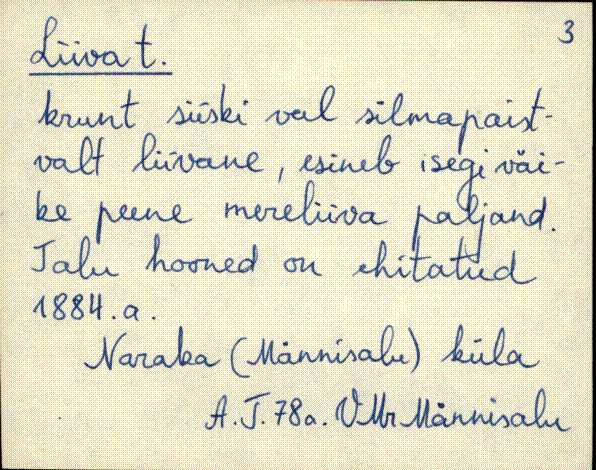 3
Liiva t.
krunt siiski veel silmapaist-
valt liivane, esineb isegi väi-
ke peene mereliiva paljand.
Talu hooned on ehitatud
1884.a.
Naraka (Männisalu) küla
A.J.78a. VMr Männisalu